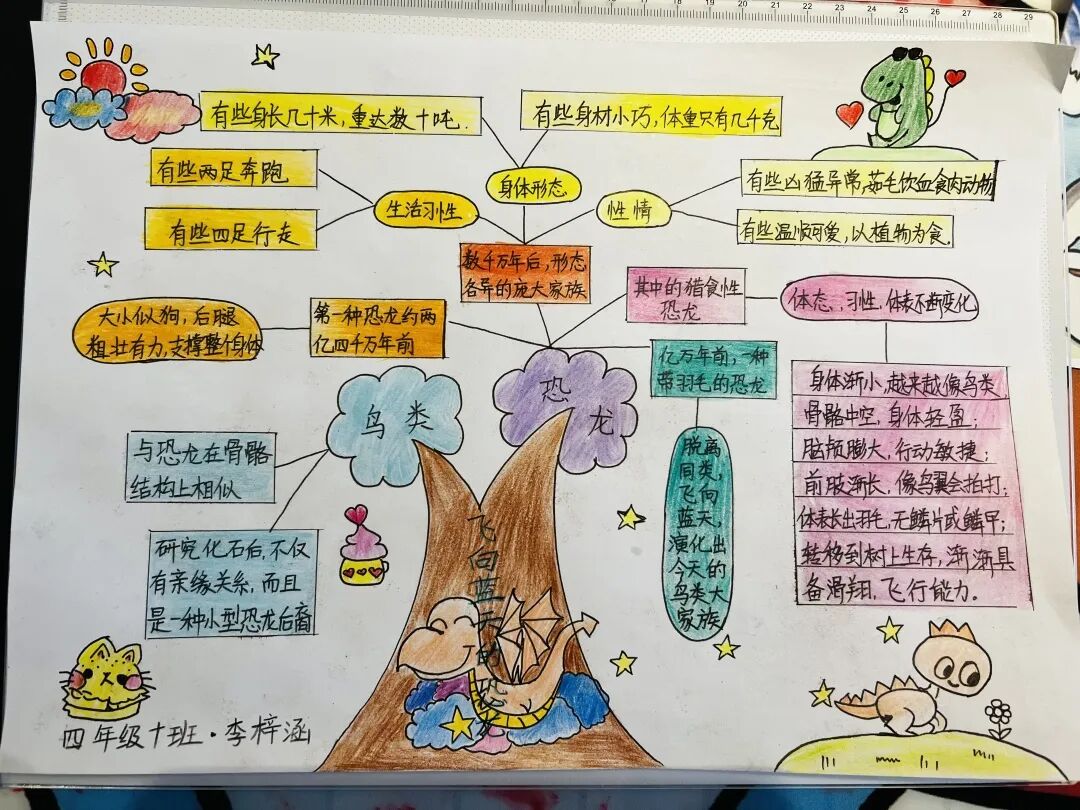 有些身长几十米，重达数十吨.
有些身材小巧，体重只有几千克
有些两足奔跑
有些四足行走
生活习性
身体形态
性情
有些凶猛异常，茹毛饮血食肉动物
有些温顺可爱，以植物为食.
数千万年后，形态
各异的庞大家族
大小似狗，后腿
粗壮有力，支撑整个身体
第一种恐龙约两
亿四千万年前
其中的猎食性
恐龙
体态、习性，体表不断变化
亿万年前，一种
带羽毛的恐龙
鸟类
恐龙
与恐龙在骨骼
结构上相似
研究化石后，不仅
有亲缘关系，而且
是一种小型恐龙后裔
飞向蓝天的恐龙
脱离
同类，
飞向
蓝天，
演化出
今天的
鸟类大
家族
身体渐小，越来越像鸟类
骨骼中空，身体轻盈；
脑颅膨大，行动敏捷；
前肢渐长，像鸟翼会拍打；
体表长出羽毛，无鳞片或鳞甲；
转移到树上生存，渐渐具
备滑翔，飞行能力.
四年级十班·李梓涵
15 16 17 18 19 20 21 22 23 24 25 26 27 28 29